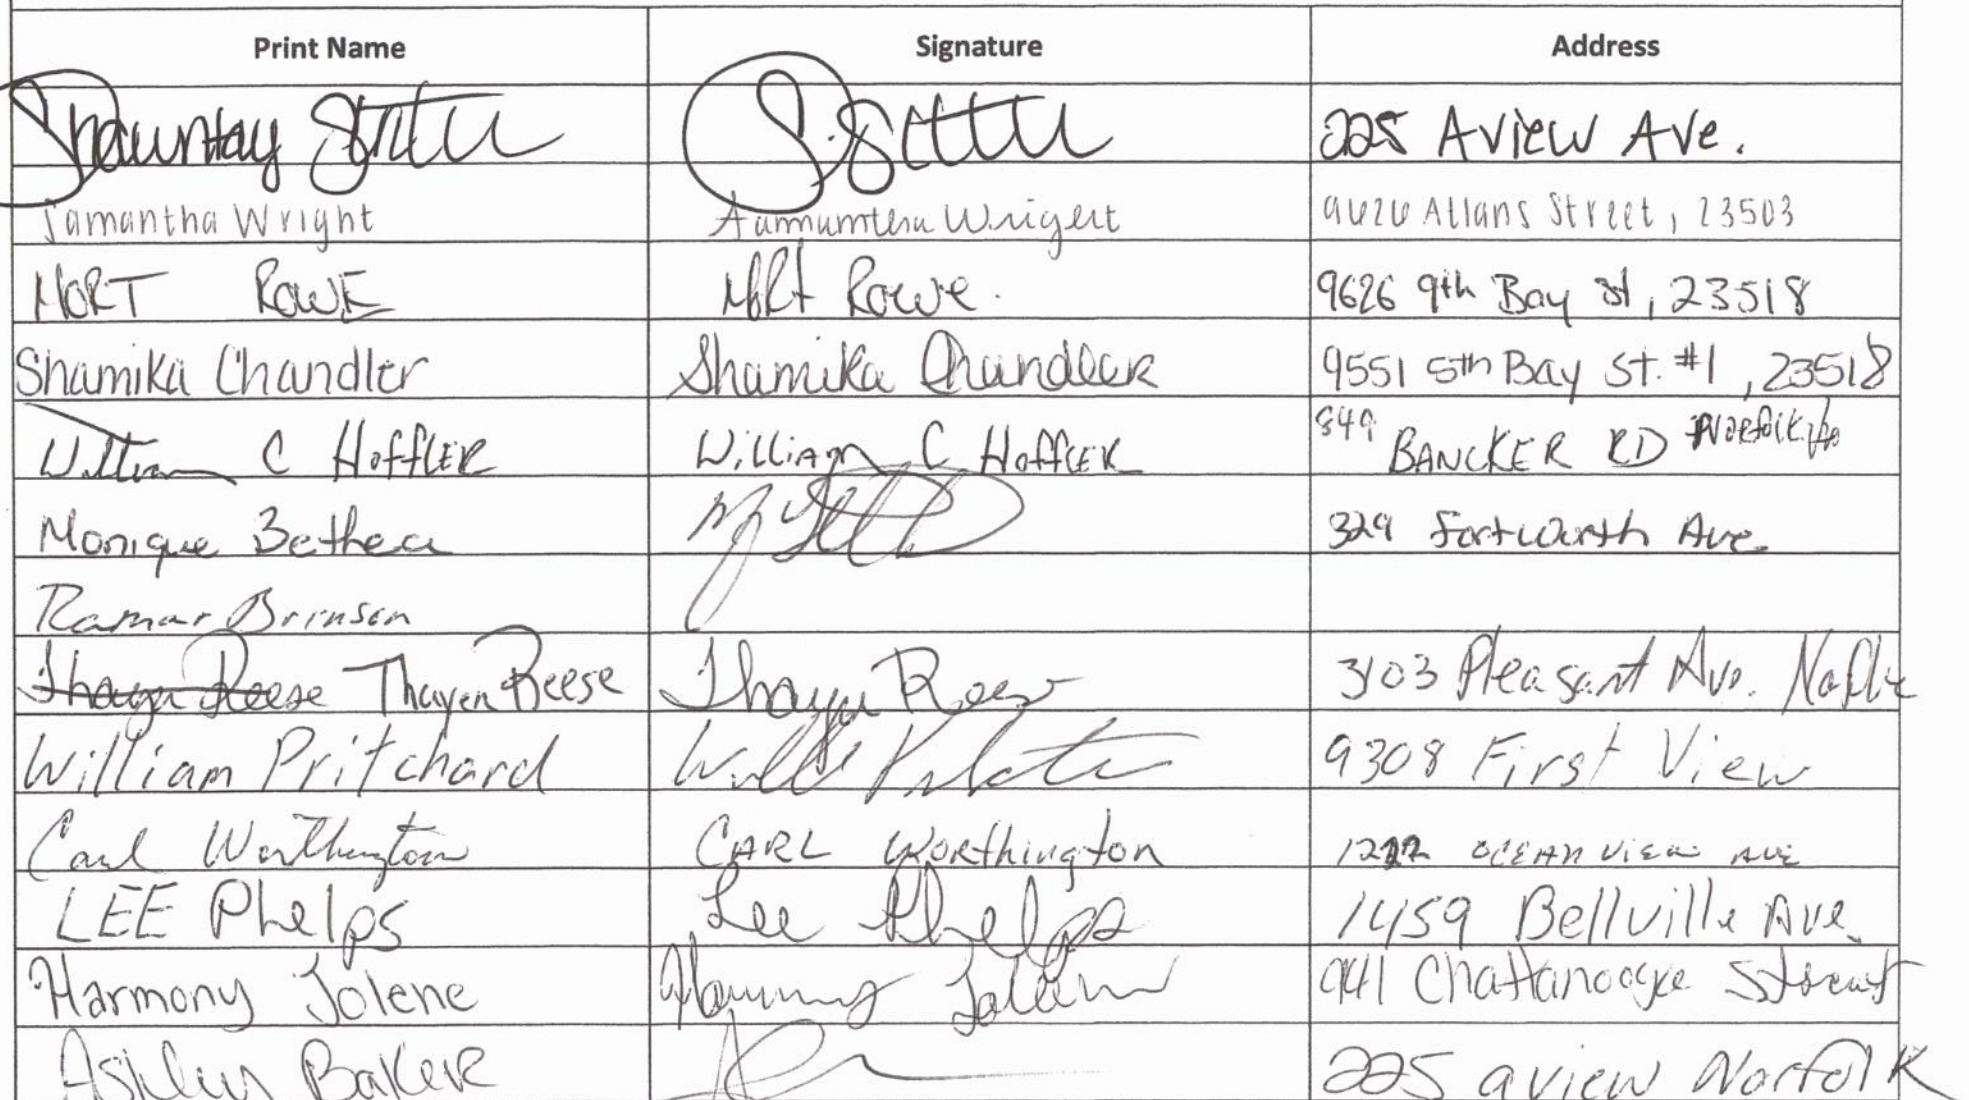 Print Name Signature Address
Shauntay 225 Aview Ave.
Samantha Wright Samantha Wright Street, 23503
MORT ROWE Mort Rowe. 9626 9th Bay St, 23518
Shamika Chandler Shamika Chandler 9551 5th Bay St. #1, 23518
William C HoffLER William C HoffLER 849 BANCKER RD Norfolk
Monique Bethea 329 Fortworth Ave.
Ramar Brinson
Thayer Reese Thayer Reese Thayer Reese 3103 Pleasant Ave.
William Pritchard 9308 First View
Carl Worthington CARL Worthington OCEAN View AVE
LEE Phelps Lee Phelps 1459 Bellville Ave.
Harmony Jolene Harmony Jolene 941 Street
Ashley Baker 225 aview Norfolk